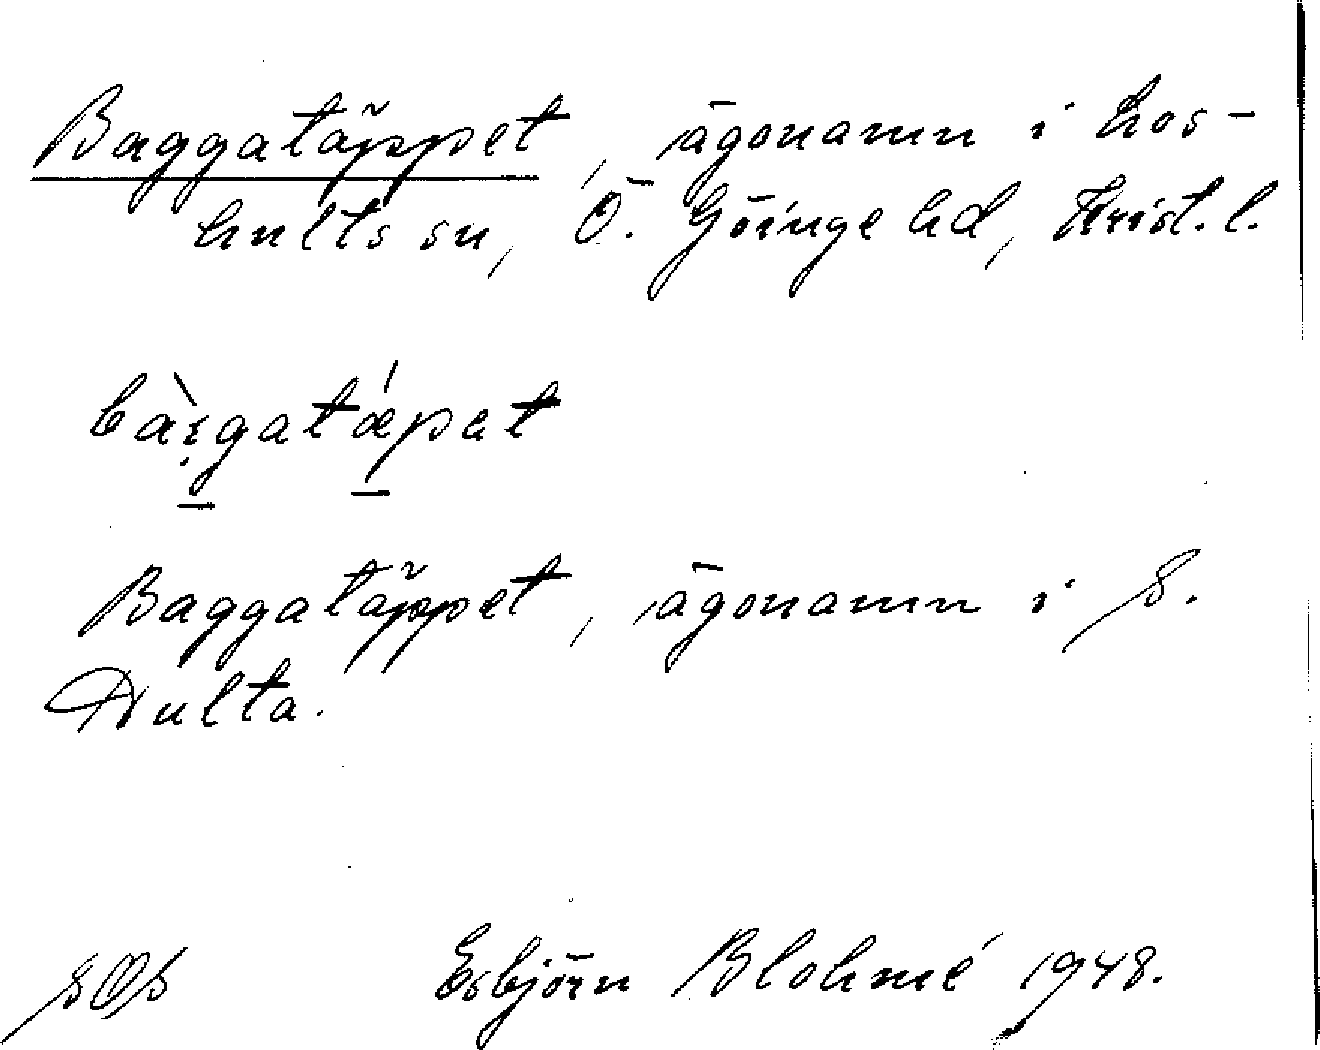 Baggatäppet, ägonamn i Los-
hults sn, Ö. Göinge hd, Krist. l.
Baggatäppet, ägonamn i S.
Hulta.
SOS Esbjörn Blohmé 1948.